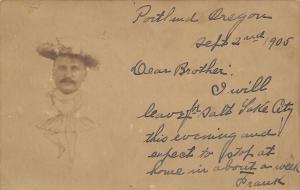 Portland Oregon
Sept 2nd 1905
Dear Brother:
I will
leave for Salt Lake City
this evening and
expect to stop at
home in about a week
Frank